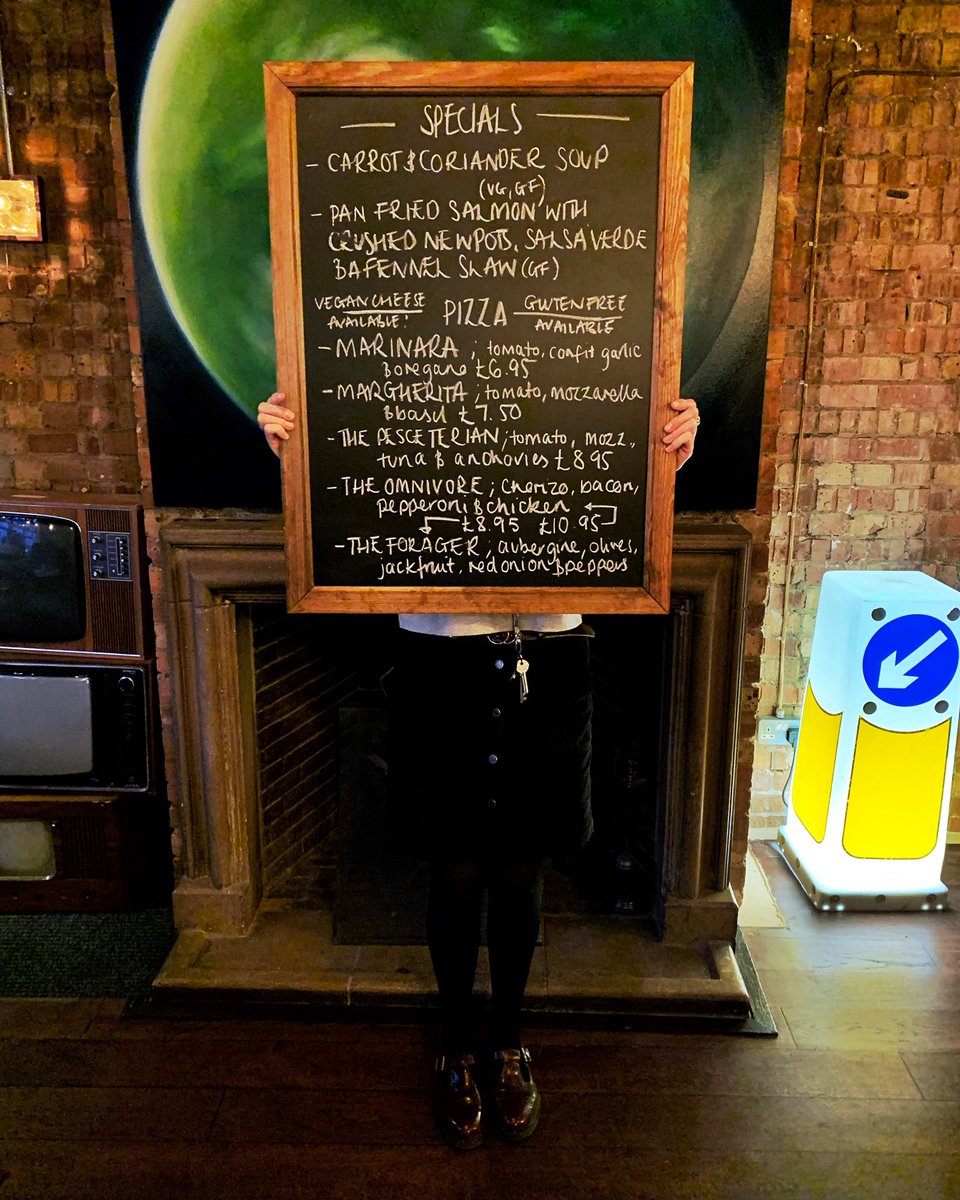 SPECIALS
- CARROT & CORIANDER SOUP
(VG, GF)
- PAN FRIED SALMON WITH
CRUSHED NEW POTS, SALSA VERDE
& A FENNEL SLAW (GF)
VEGAN CHEESE PIZZA GLUTEN FREE
AVAILABLE! AVAILABLE
- MARINARA ; tomato, confit garlic
& oregano £6.95
- MARGHERITA ; tomato, mozzarella
& basil £7.50
- THE PESCETERIAN ; tomato, mozz.,
tuna & anchovies £8.95
- THE OMNIVORE ; chorizo, bacon,
pepperoni & chicken
£8.95 £10.95
- THE FORAGER ; aubergine, olives,
jackfruit, red onion & peppers